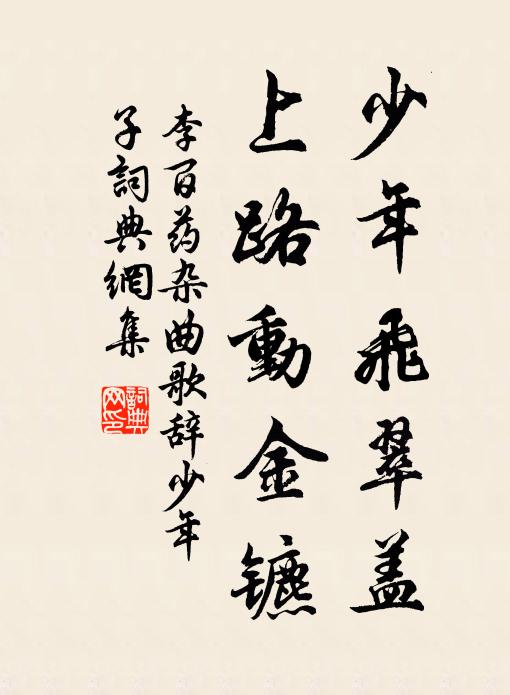 少年飛翠盖
上路動金镳
李百药杂曲歌辞少年
子詞典網集
詞典网印